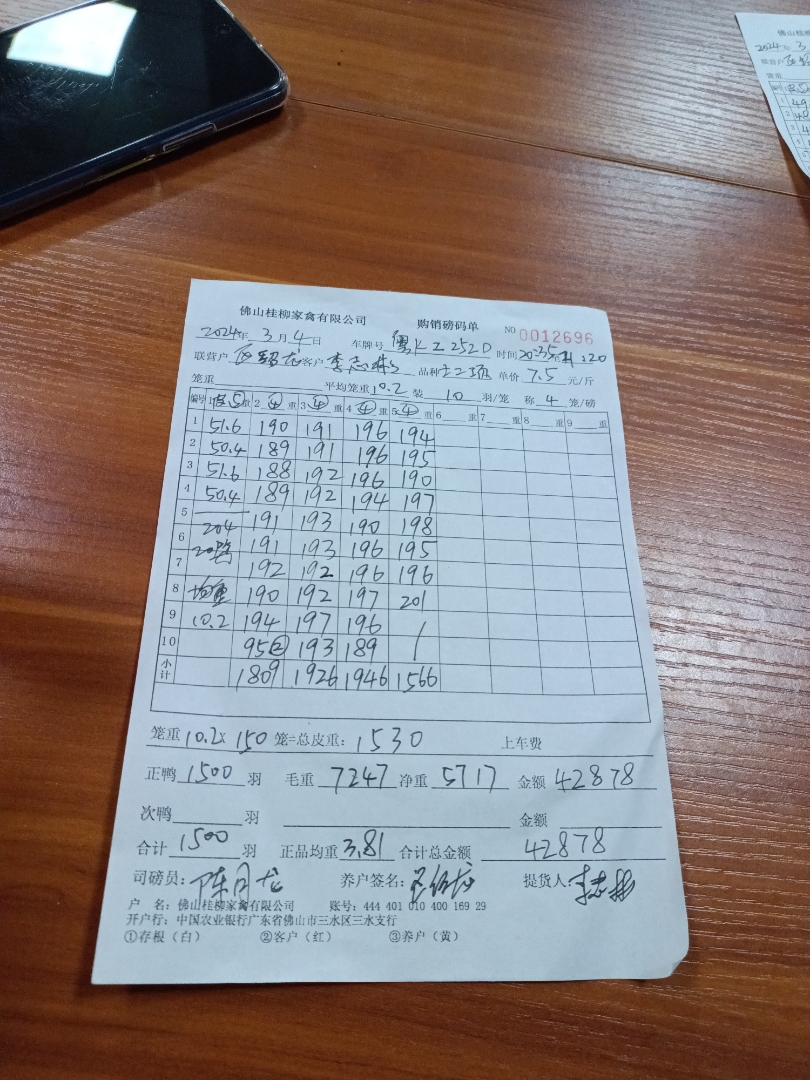 佛山桂柳家禽有限公司 购销磅码单 NO 0012696
2024年 3月 4日 车牌号 粤KZ252D 时间 20:35至21:20
联营户 客户 李志 品种 单价 7.5 元/斤
笼重 平均笼重 10.2 装 10 羽/笼 称 4 笼/磅
编号 1 重 2 ④ 重 3 ④ 重 4 ④ 重 5 ④ 重 6 重 7 重 8 重 9 重
1 51.6 190 191 196 194
2 50.4 189 191 196 195
3 51.6 188 192 196 190
4 50.4 189 192 194 197
5 204 191 193 190 198
6 20 191 193 196 195
7 192 192 196 196
8 均重 190 192 197 201
9 10.2 194 197 196 /
10 95② 193 189
小计 1809 1926 1946 1566
笼重 10.2 x 150 笼=总皮重： 1530 上车费
正鸭 1500 羽 毛重 7247 净重 5717 金额 42878
次鸭 羽 金额
合计 1500 羽 正品均重 3.81 合计总金额 42878
司磅员： 陈月龙 养户签名： 提货人： 李志
户 名：佛山桂柳家禽有限公司 账号：444 401 010 400 169 29
开户行：中国农业银行广东省佛山市三水区三水支行
①存根（白） ②客户（红） ③养户（黄）
佛山桂柳
2024年 3
联营户
笼重
编号
1 49
2